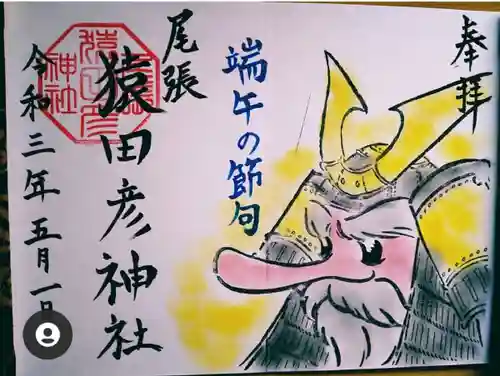 奉拝
端午の節句
尾張
猿田彦神社
令和三年五月一日
尾張
猿田彦
神社